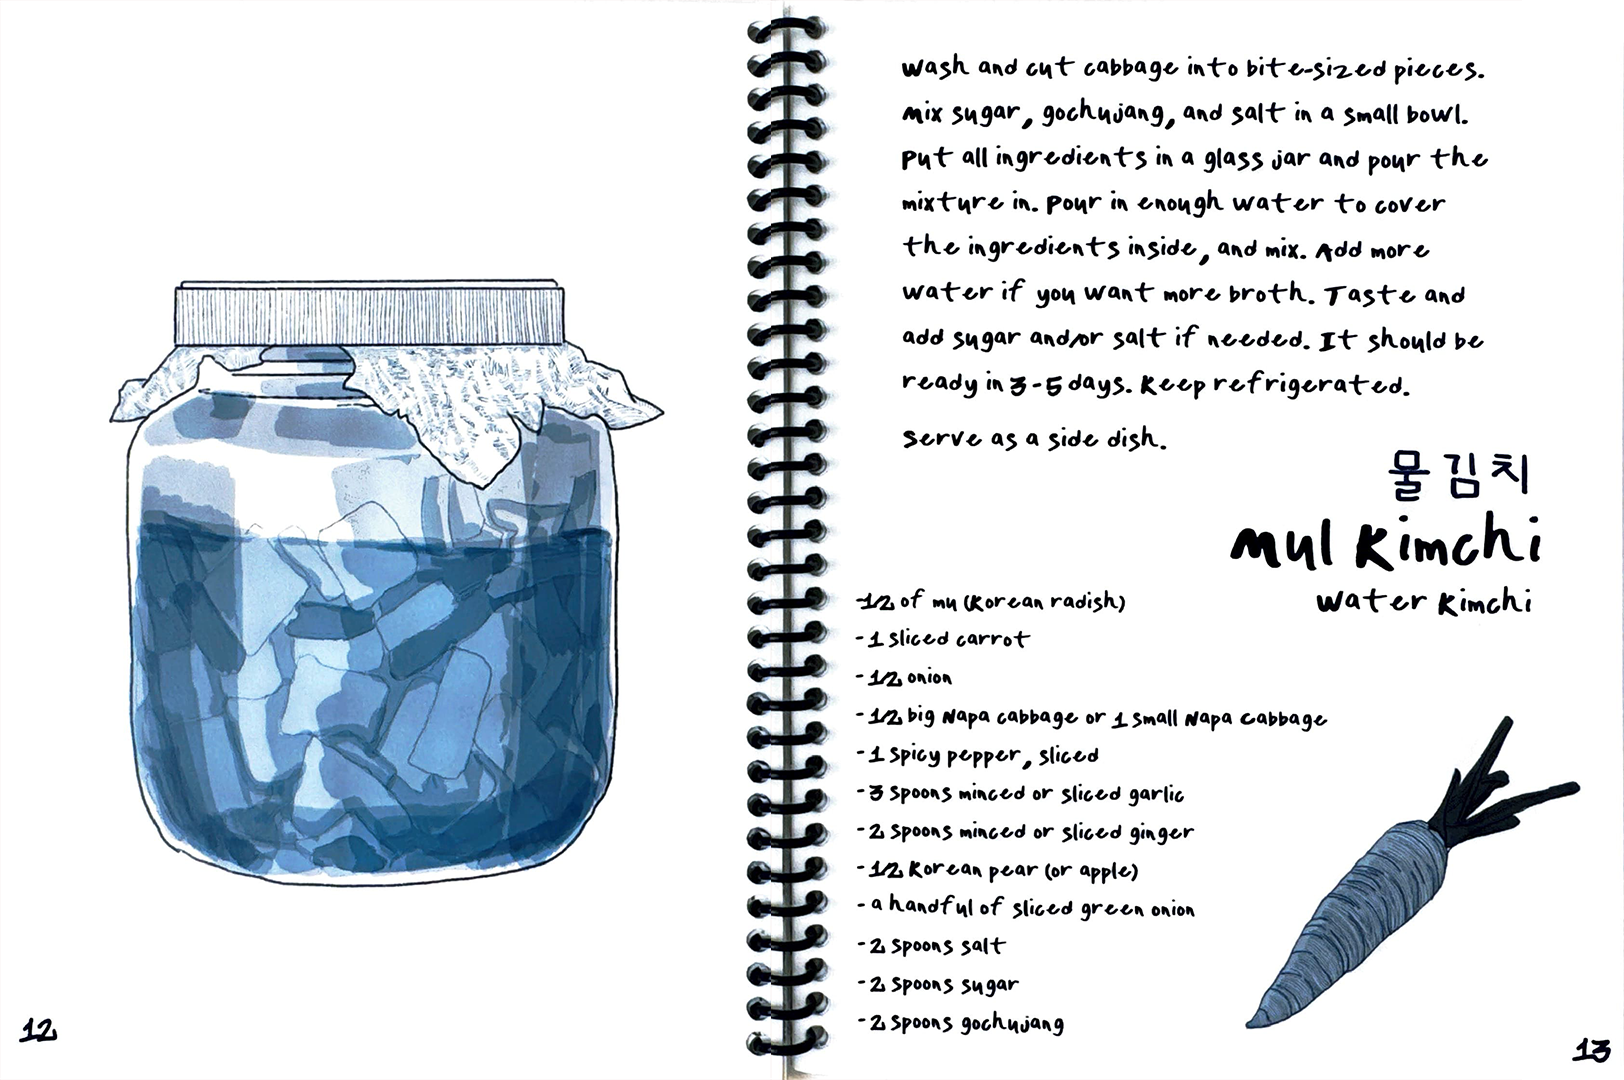 wash and cut cabbage into bite-sized pieces.
Mix sugar, gochujang, and salt in a small bowl.
Put all ingredients in a glass jar and pour the
mixture in. Pour in enough water to cover
the ingredients inside, and mix. Add more
water if you want more broth. Taste and
add sugar and/or salt if needed. It should be
ready in 3-5 days. Keep refrigerated.
Serve as a side dish.
물김치
Mul Kimchi
Water Kimchi
-1/2 of mu (Korean radish)
-1 sliced carrot
-1/2 onion
-1/2 big Napa cabbage or 1 small Napa cabbage
-1 spicy pepper, sliced
-3 spoons minced or sliced garlic
-2 spoons minced or sliced ginger
-1/2 Korean pear (or apple)
-a handful of sliced green onion
-2 spoons salt
-2 spoons sugar
-2 spoons gochujang
12
13